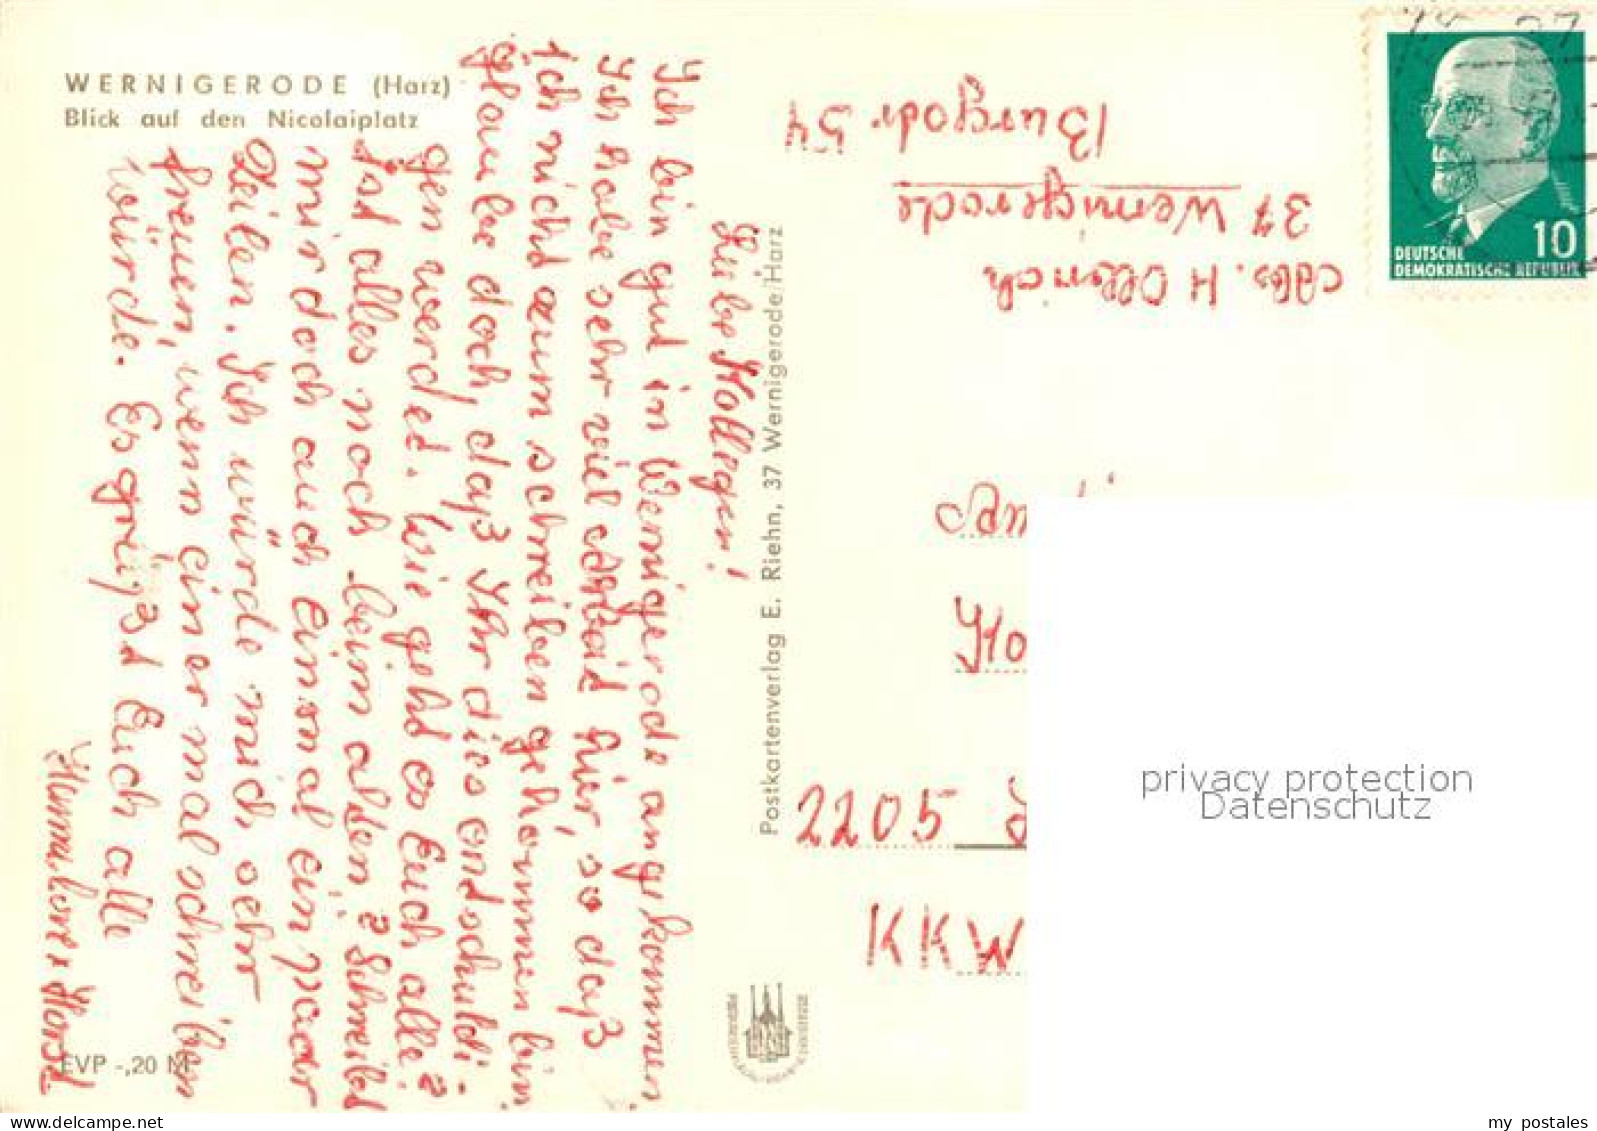 WERNIGERODE (Harz)
Blick auf den Nicolaiplatz
Liebe Kollegen!
Ich bin gut in Wernigerode angekommen
Ich habe sehr viel Arbeit hier, so daß
ich nicht zum schreiben gekommen bin
glaube doch, daß Ihr dies entschuldi-
gen werdet. Wie geht es Euch alle?
Ist alles noch beim alten? Schreibt
mir doch auch einmal ein paar
Zeilen. Ich würde mich sehr
freuen, wenn einer mal schreiben
würde. Es grüßt Euch alle
Horst
EVP -,20 M
Postkartenverlag E. Riehn, 37 Wernigerode/Harz
Abs. H
37 Wernigerode
54
DEUTSCHE
DEMOKRATISCHE REPUBLIK
10
An
Ko
2205
KKW
privacy protection
Datenschutz
my postales
delcampe.net